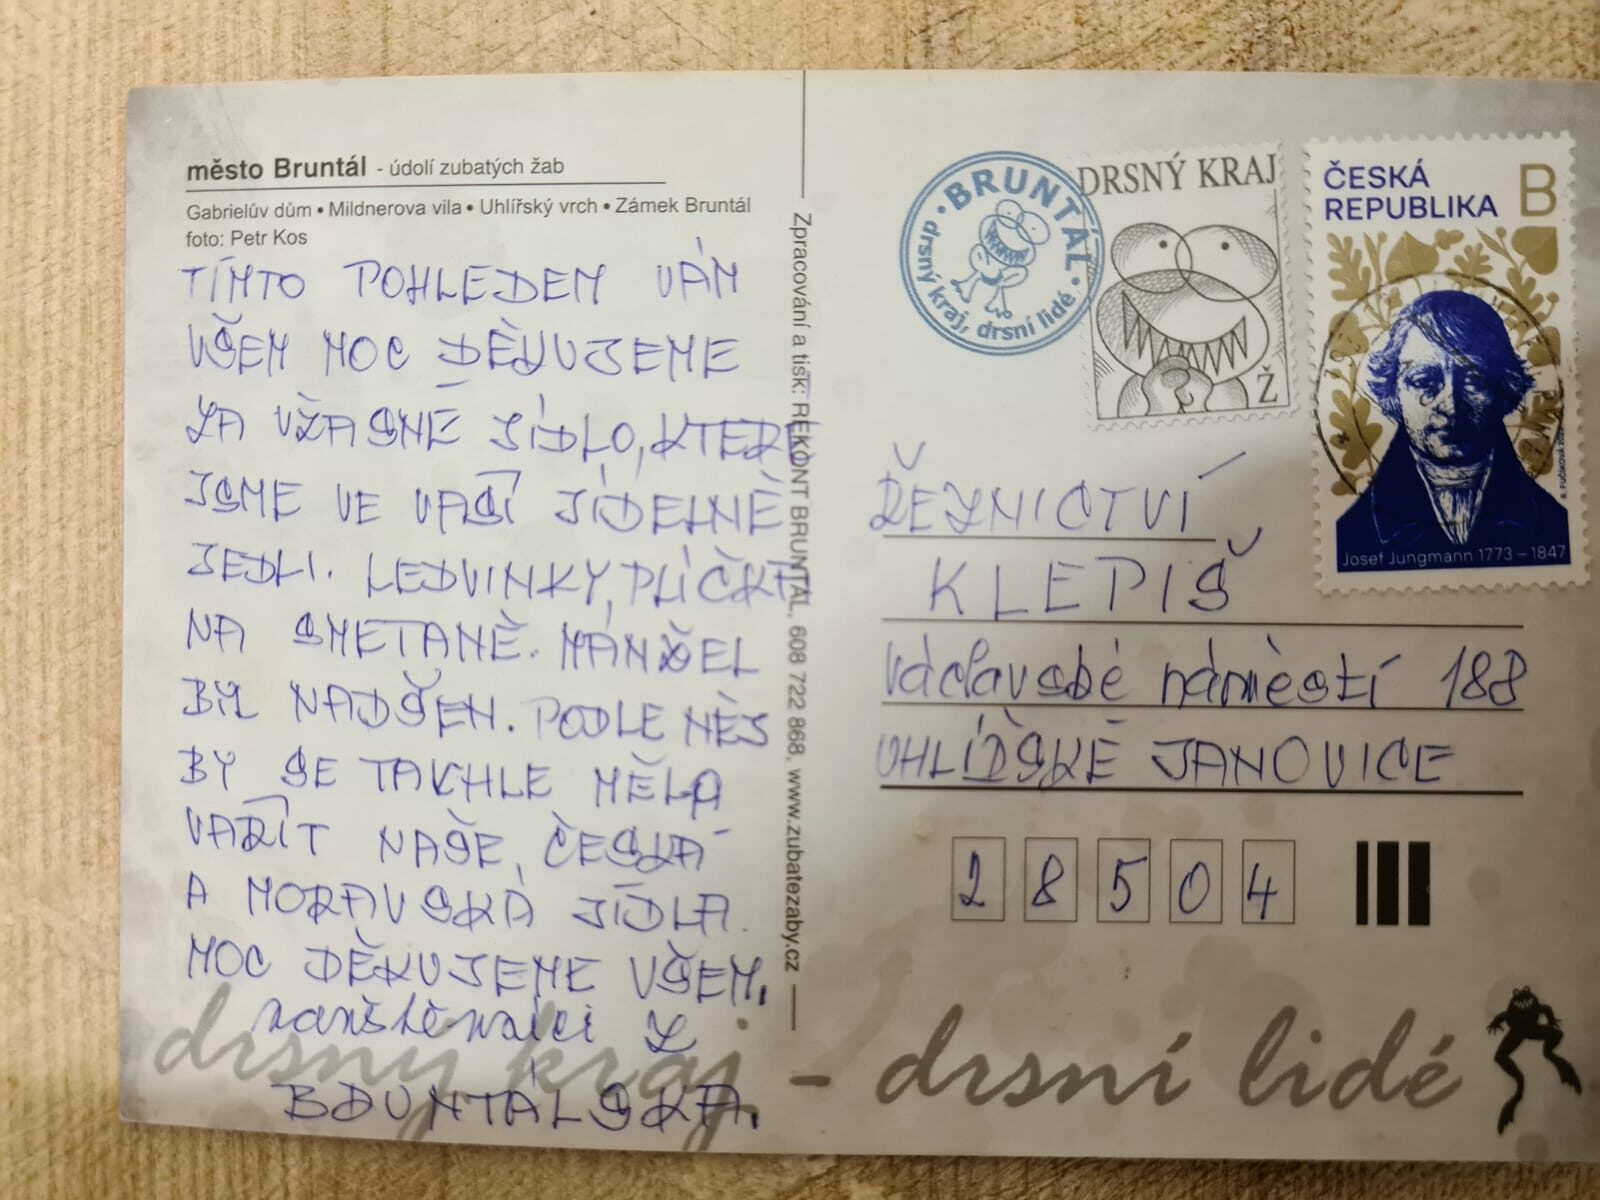 město Bruntál - údolí zubatých žab
Gabrielův dům • Mildnerova vila • Uhlířský vrch • Zámek Bruntál
foto: Petr Kos
TÍMTO POHLEDEM VÁM
VŠEM MOC DĚKUJEME
ZA ÚŽASNÉ JÍDLO, KTERÉ
JSME VE VAŠÍ JÍDELNĚ
JEDLI. LEDVINKY, PLÍČKA
NA SMETANĚ. MANŽEL
BYL NADŠEN. PODLE NÉS
BY SE TAKHLE MĚLA
VAŘIT NAŠE, ČESKÁ
A MORAVSKÁ JÍDLA.
MOC DĚKUJEME VŠEM.
Z
BRUNTÁLSKA.
Zpracování a tisk: REKONT BRUNTÁL, 608 722 868, www.zubatezaby.cz
BRUNTÁL
drsný kraj, drsní lidé
DRSNÝ KRAJ
Ž
ČESKÁ
REPUBLIKA B
Josef Jungmann 1773 – 1847
ŘEZNICTVÍ
KLEPIŠ
Václavské náměstí 188
UHLÍŘSKÉ JANOVICE
28504
drsný kraj - drsní lidé